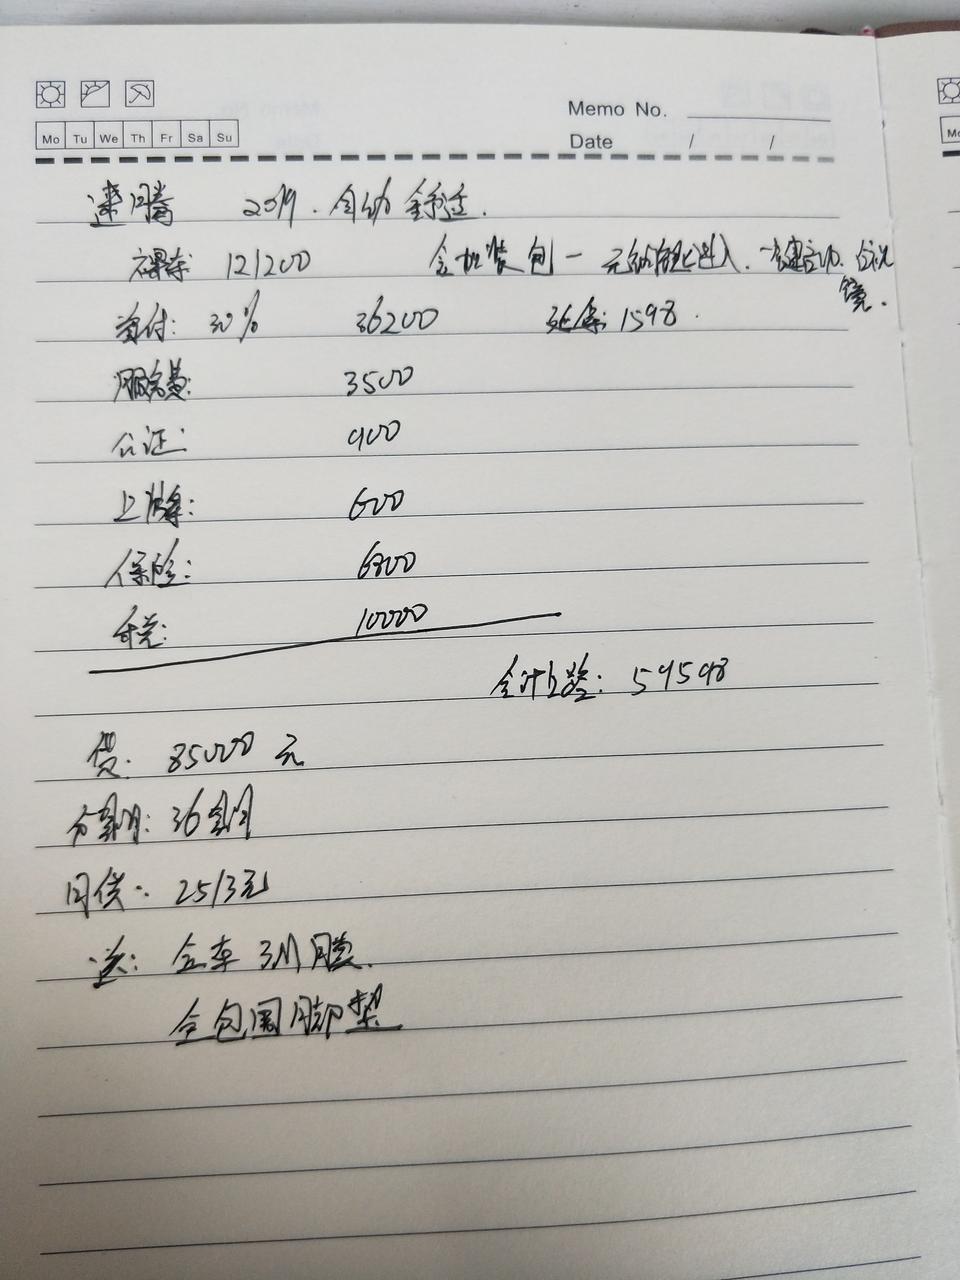 Memo No.
Mo Tu We Th Fr Sa Su
Date / /
速腾 2019. 自动 舒适.
裸车 121200 含加装包一 无钥匙进入. 一键启动. 后视镜.
首付: 30% 36200 延保: 1598.
服务费: 3500
公证: 900
上牌: 600
保险: 6800
购税: 10000
合计上路: 59598
贷: 85000 元
分期: 36个月
月供: 2513元
送: 全车 3M 膜.
全包围脚垫